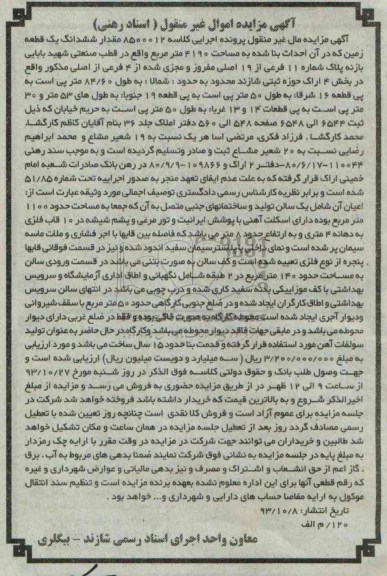 آگهی مزایده اموال غیر منقول ( اسناد رهنی )
آگهی مزایده مال غیر منقول پرونده اجرایی کلاسه ۸۵۰۰۰۱۲ مقدار ششدانگ یک قطعه
زمین که در آن احداث بنا شده به مساحت ۴۱۹۰ متر مربع واقع در قطب صنعتی شهید بابایی
بازنه پلاک شماره ۱۱ فرعی از ۱۹ اصلی مفروز و مجزی شده از ۴ فرعی از اصلی مذکور واقع
در بخش ۴ اراک حوزه ثبتی شازند محدود به حدود : شمالا : به طول ۸۴/۶۰ متر پی است به
پی قطعه ۱۶ شرقا: به طول ۵۰ متر پی است به پی قطعه ۱۹ جنوبا: به طول های ۵۳ متر و ۳۰
متر پی است به پی قطعات ۱۴ و ۱۳ غربا: به طول ۵۰ متر پی است به حریم خیابان که ذیل
ثبت ۶۵۴۴ الی ۶۵۴۸ صفحه ۵۴۸ الی ۵۶۰ دفتر املاک جلد ۳۶ بنام آقایان کاظم کارگشا،
محمد کارگشا ، فرزاد فکری، مرتضی اسا هر یک نسبت به ۱۹ شعیر مشاع و محمد ابراهیم
رضایی نسبت به ۲۰ شعیر مشاع ثبت و صادر وتسلیم گردیده است و به موجب سند رهنی
۱۱۰۰۴۴-۸۰/۶/۱۷ دفتر ۲ اراک و ۱۰۹۸۶۶-۸۰/۹/۹ در رهن بانک صادرات شعبه امام
خمینی اراک قرار گرفته که به علت عدم ایفای تعهد منجر به صدور اجراییه تحت شماره ۵۱/۸۵
شده است و برابر نظریه کارشناس رسمی دادگستری توصیف اجمالی مورد وثیقه عبارت است از:
اعیان آن شامل یک سالن تولید و ساختمانهای جنبی متصل به آن که جمعا به مساحت حدود ۱۱۰۰
متر مربع بوده دارای اسکلت آهنی با پوشش ایرانیت و تور مرغی و پشم شیشه در ۱۰ قاب فلزی
به دهانه ۴ متری و به ارتفاع حدود ۸ متر می باشد که فاصله بین قابها با اجر فشاری و ملات ماسه
سیمان پر شده است و نمای داخلی با پلاستر سیمان سفید اندود شده و نیز در قسمت فوقانی قابها
پنجره از نوع فلزی تعبیه شده است و کف سالن به صورت بتنی می باشد در قسمت ورودی سالن
به مساحت حدود ۱۴۰ متر مربع در ۲ طبقه شامل نگهبانی و اطاق اداری آزمایشگاه و سرویس
بهداشتی با کف موزاییکی بدنه سفید کاری شده و درب چوبی می باشد در انتهای سالن سرویس
بهداشتی و اطاق کارگران ایجاد شده و در ضلع جنوبی کارگاهی حدود ۵۰ متر مربع با سقف شیروانی
ودیوار آجری ایجاد شده است محوطه کارگاه به صورت خاکی بوده و فقط در ضلع غربی دارای دیوار
محوطه می باشد و در مابقی جهات فاقد دیوار محوطه می باشد وکارگاه در حال حاضر به عنوان تولید
سولفات آهن مورد استفاده قرار گرفته و قدمت بنا حدود ۱۵ سال ساخت می باشد و مورد ارزیابی
به مبلغ ۳/۲۰۰/۰۰۰/۰۰۰ ریال ( سه میلیارد و دویست میلیون ریال) ارزیابی شده است و
جهت وصول طلب بانک و حقوق دولتی کلاسه فوق الذکر در روز شنبه مورخ ۹۳/۱۰/۲۷
از ساعت ۹ الی ۱۲ ظهر در از طریق مزایده حضوری به فروش می رسد و مزایده از مبلغ
اخیرالذکر شروع و به بالاترین قیمت که خریدار داشته باشد فروخته خواهد شد شرکت در
جلسه مزایده برای عموم آزاد است و فروش کلا نقدی است چنانچه روز تعیین شده با تعطیل
رسمی مصادف گردد روز بعد از تعطیل جلسه مزایده در همان ساعت و مکان تشکیل خواهد
شد طالبین و خریداران می توانند جهت شرکت در مزایده در وقت مقرر با ارایه چک رمزدار
به مبلغ پایه در جلسه مزایده به نشانی فوق شرکت نمایند ضمنا بدهی های مربوط به آب، برق
، گاز اعم از حق انشعاب و اشتراک و مصرف و نیز بدهی مالیاتی و عوارض شهرداری و غیره
که رقم قطعی آنها برای این اداره معلوم نشده بعهده برنده مزایده است و تنظیم سند انتقال
موکول به ارایه مفاصا حساب های دارایی و شهرداری و... خواهد بود .
تاریخ انتشار: ۹۳/۱۰/۸
۱۲۰/ م الف
معاون واحد اجرای اسناد رسمی شازند - بیگلری